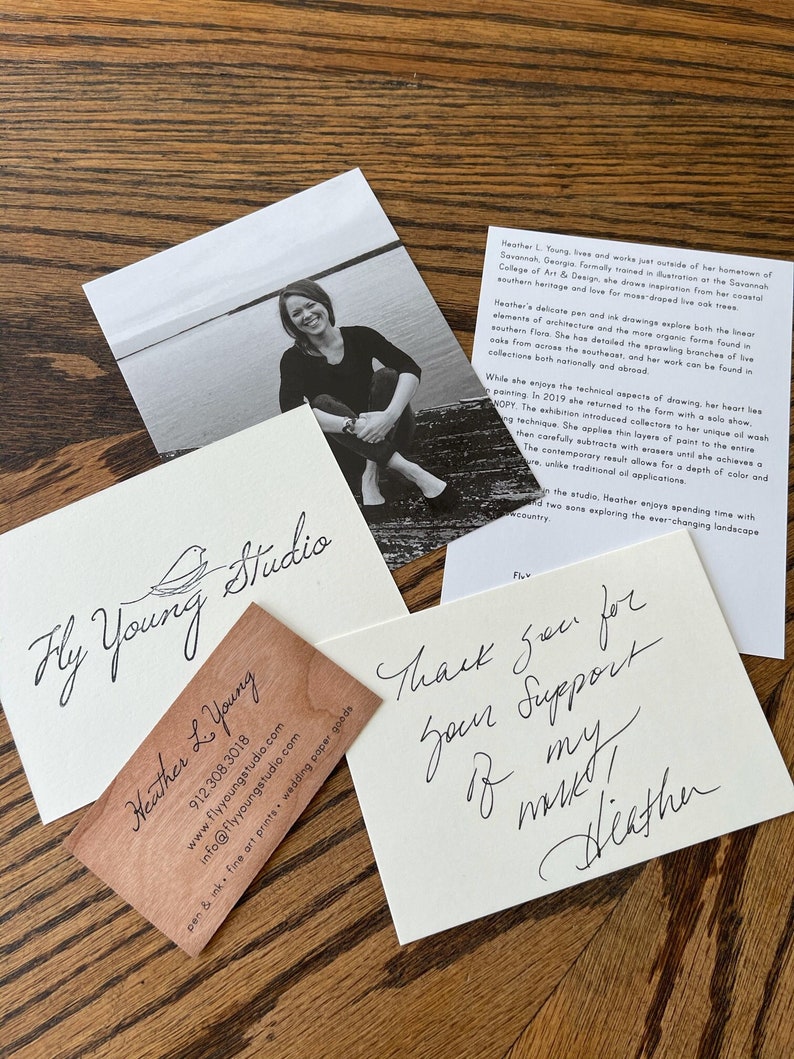 Heather L. Young, lives and works just outside of her hometown of
Savannah, Georgia. Formally trained in illustration at the Savannah
College of Art & Design, she draws inspiration from her coastal
southern heritage and love for moss-draped live oak trees.
Heather's delicate pen and ink drawings explore both the linear
elements of architecture and the more organic forms found in
southern flora. She has detailed the sprawling branches of live
oaks from across the southeast, and her work can be found in
collections both nationally and abroad.
While she enjoys the technical aspects of drawing, her heart lies
painting. In 2019 she returned to the form with a solo show,
NOPY. The exhibition introduced collectors to her unique oil wash
ng technique. She applies thin layers of paint to the entire
then carefully subtracts with erasers until she achieves a
The contemporary result allows for a depth of color and
ure, unlike traditional oil applications.
in the studio, Heather enjoys spending time with
and two sons exploring the ever-changing landscape
wcountry.
Fly Young Studio
Thank you for
your support
of my
work!
Heather
Heather L. Young
912.308.3018
www.flyyoungstudio.com
info@flyyoungstudio.com
pen & ink • fine art prints • wedding paper goods